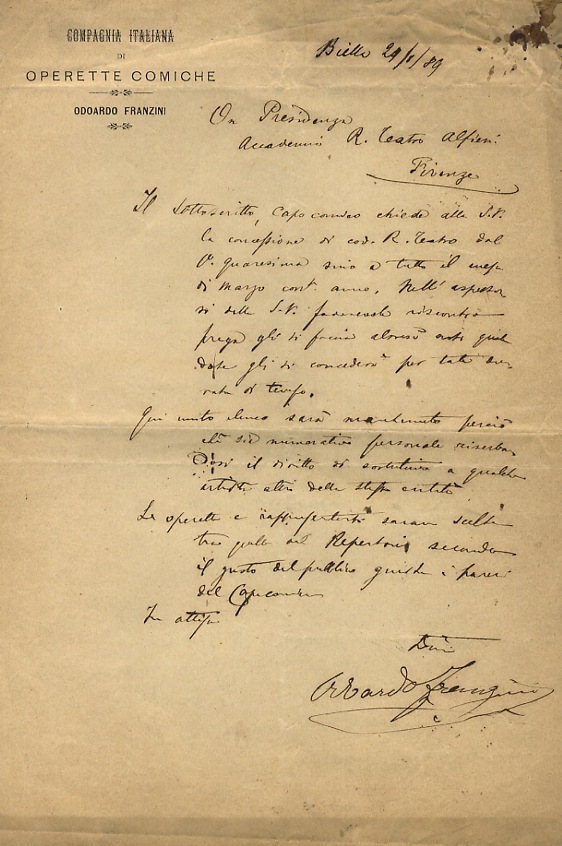 COMPAGNIA ITALIANA
DI
OPERETTE COMICHE
ODOARDO FRANZINI
Biella 24/1/89
On Presidenza
Accademici R. Teatro Alfieri
Firenze
Il Sottoscritto, Capocomico chiede alla S.V.
la concessione di cod. R. Teatro dal
quaresima sino a tutto il mese
di Marzo cor. anno. Nell'aspettar
si dalla S.V. favorevole riscontro
prega gli si faccia
gli si concederà per tale du
rata di tempo.
Qui unito elenco sarà mantenuto
numerativo personale riserban
dosi il diritto di sostituire a qualche
artista altri della stessa entità
Le operette saran scelte
tra quelle del Repertorio secondo
il gusto del pubblico i pareri
del Capocomico
In attesa
Odoardo Franzini